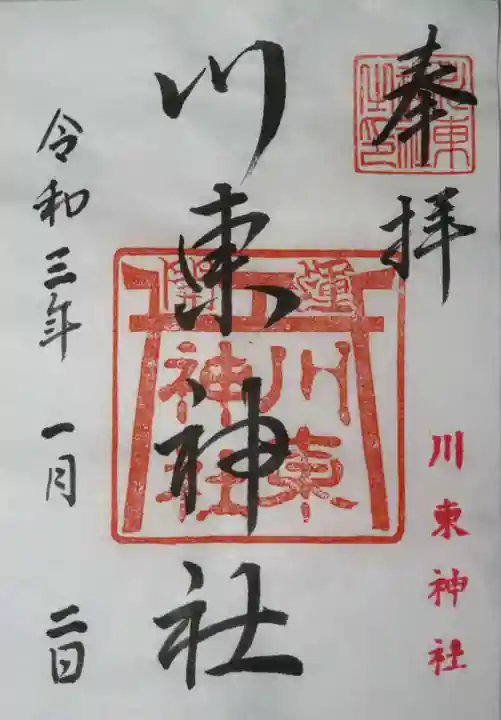 奉拝
川東神社
川東神社
開運
川東神社
令和三年 一月 二日